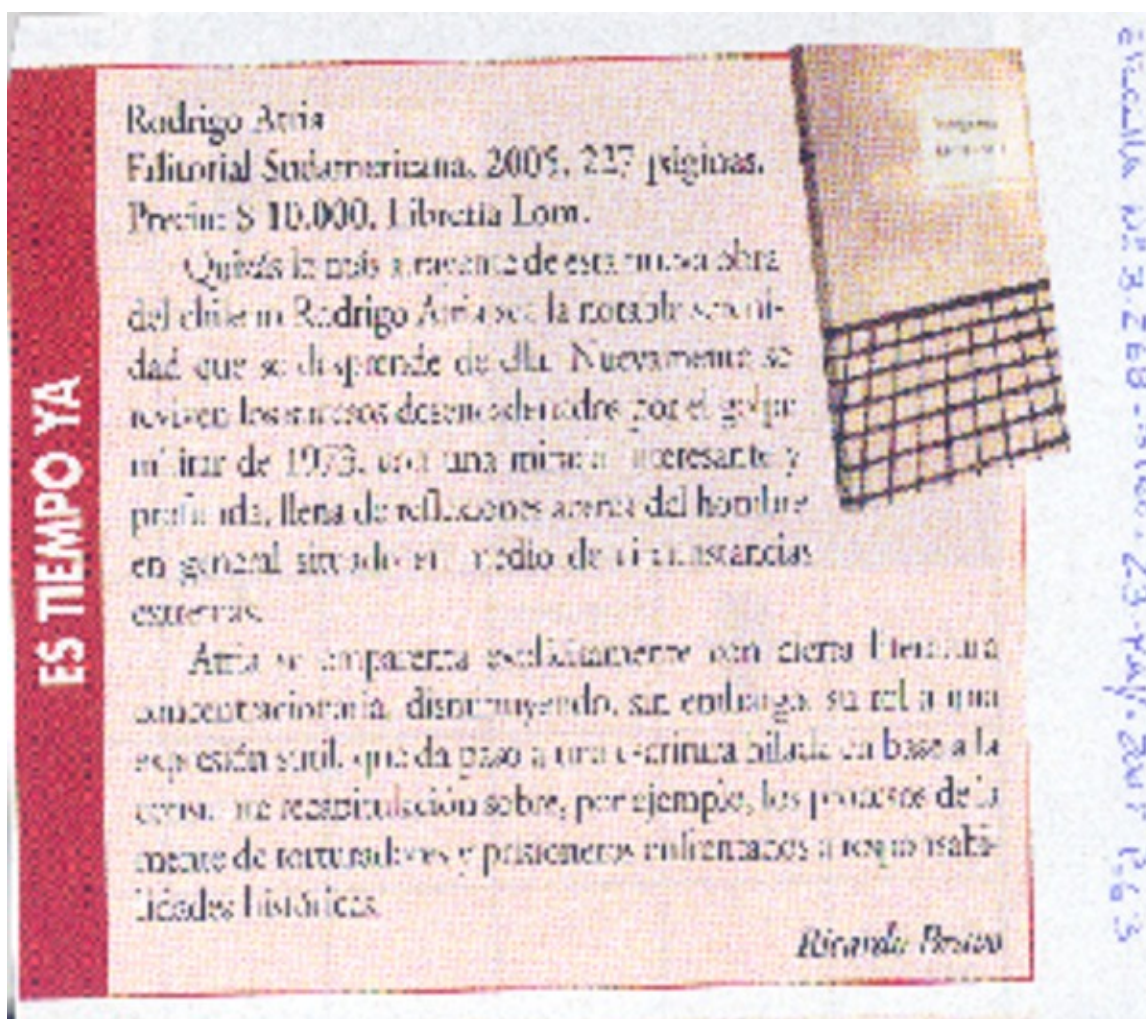 ES TIEMPO YA
Rodrigo Atria
Editorial Sudamericana, 2005, 227 páginas.
Precio: $ 10.000. Librería Lom.
Quizás lo más atrayente de esta nueva obra
del chileno Rodrigo Atria sea la notable sereni-
dad que se desprende de ella. Nuevamente se
reviven los sucesos desencadenados por el golpe
militar de 1973, con una mirada interesante y
profunda, llena de reflexiones acerca del hombre
en general situado en medio de circunstancias
extremas.
Atria se emparenta explícitamente con cierta literatura
concentracionaria, disminuyendo, sin embargo, su rol a una
expresión sutil, que da paso a una escritura hilada en base a la
constante recapitulación sobre, por ejemplo, los procesos de la
mente de torturadores y prisioneros enfrentados a responsabi-
lidades históricas.
Ricardo